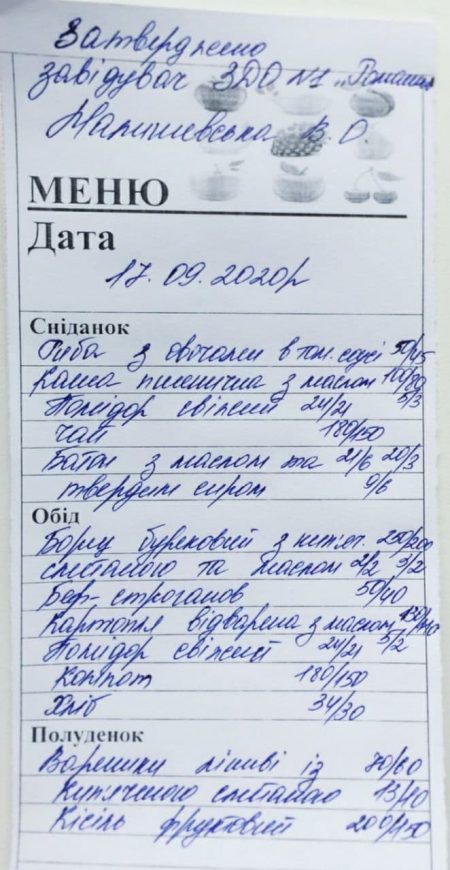 Затверджено
завідувач ЗДО №1 „Ромашка
В.О.
МЕНЮ
Дата
17.09.2020р
Сніданок
Риба з овочами в том. соусі 50/45
Каша пшенична з маслом 100/80
Помідор свіжий 24/21 5/3
Чай 180/150
Батон з маслом та 21/6 20/3
твердим сиром 9/6
Обід
Борщ буряковий з кип'яч. 250/200
сметаною та маслом 2/2 3/2
Беф-строганов 50/40
Картопля відварена з маслом
Помідор свіжий 24/21 5/2
Компот 180/150
Хліб 34/30
Полуденок
Вареники ліниві із 70/60
Кип'яченою сметаною 13/10
Кісіль фруктовий 200/150